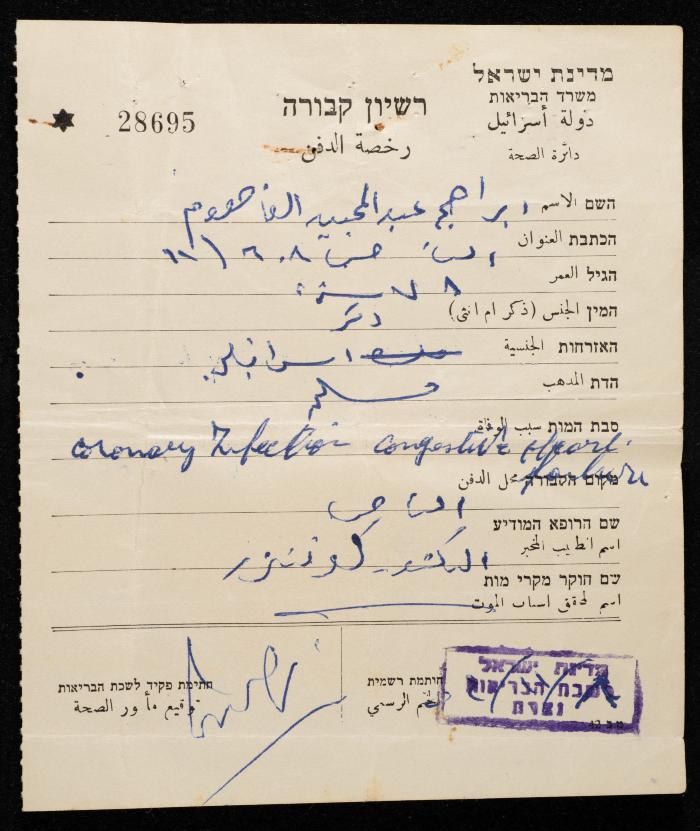 מדינת ישראל
משרד הבריאות
دولة أسرائيل
دائرة الصحة
רשיון קבורה
رخصة الدفن
28695
השם الاسم ابراهيم عبد المجيد الفاهوم
הכתבת العنوان
הגיל العمر ٧٨ سنة
המין الجنس (ذكر ام انثى) ذكر
האזרחות الجنسية اسرائيلي
הדת المذهب مسلم
סבת המות سبب الوفاة
coronary Infection congestive Heart failure
מקום הקבורה محل الدفن الناصرة
שם הרופא המודיע
اسم الطبيب المخبر الدكتور
שם חוקר מקרי מות
اسم محقق اسباب الموت
חתימת פקיד לשכת הבריאות
توقيع مأمور الصحة
חותמת רשמית
الختم الرسمي
מדינת ישראל
לשכת הבריאות
נצרת